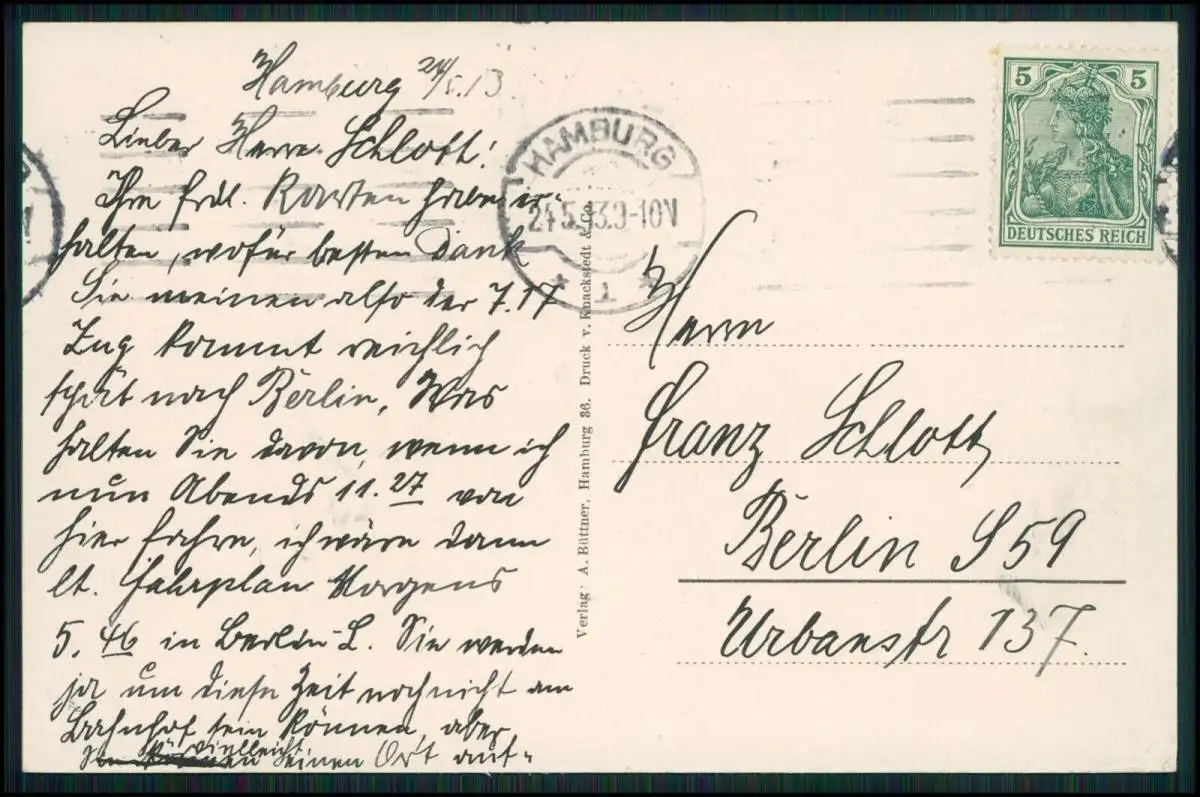 Hamburg 24/5.13
Lieber Herr Schlott!
Ihre frdl. Karten habe er-
halten, wofür besten Dank
Sie meinen also der 7.17
Zug kommt reichlich
spät nach Berlin. Was
halten Sie davon, wenn ich
nun Abends 11.27 von
hier fahre, ich wäre dann
lt. Fahrplan Morgens
5.46 in Berlin-L. Sie werden
ja um diese Zeit noch nicht am
Bahnhof sein können, aber
vielleicht einen Ort ant-
HAMBURG
24.5.13.9-10V
* 1 *
Verlag: A. Büttner, Hamburg 36. Druck v. Knackstedt & Co.
5 5
DEUTSCHES REICH
Herrn
Franz Schlott
Berlin S 59
Urbanstr 137.